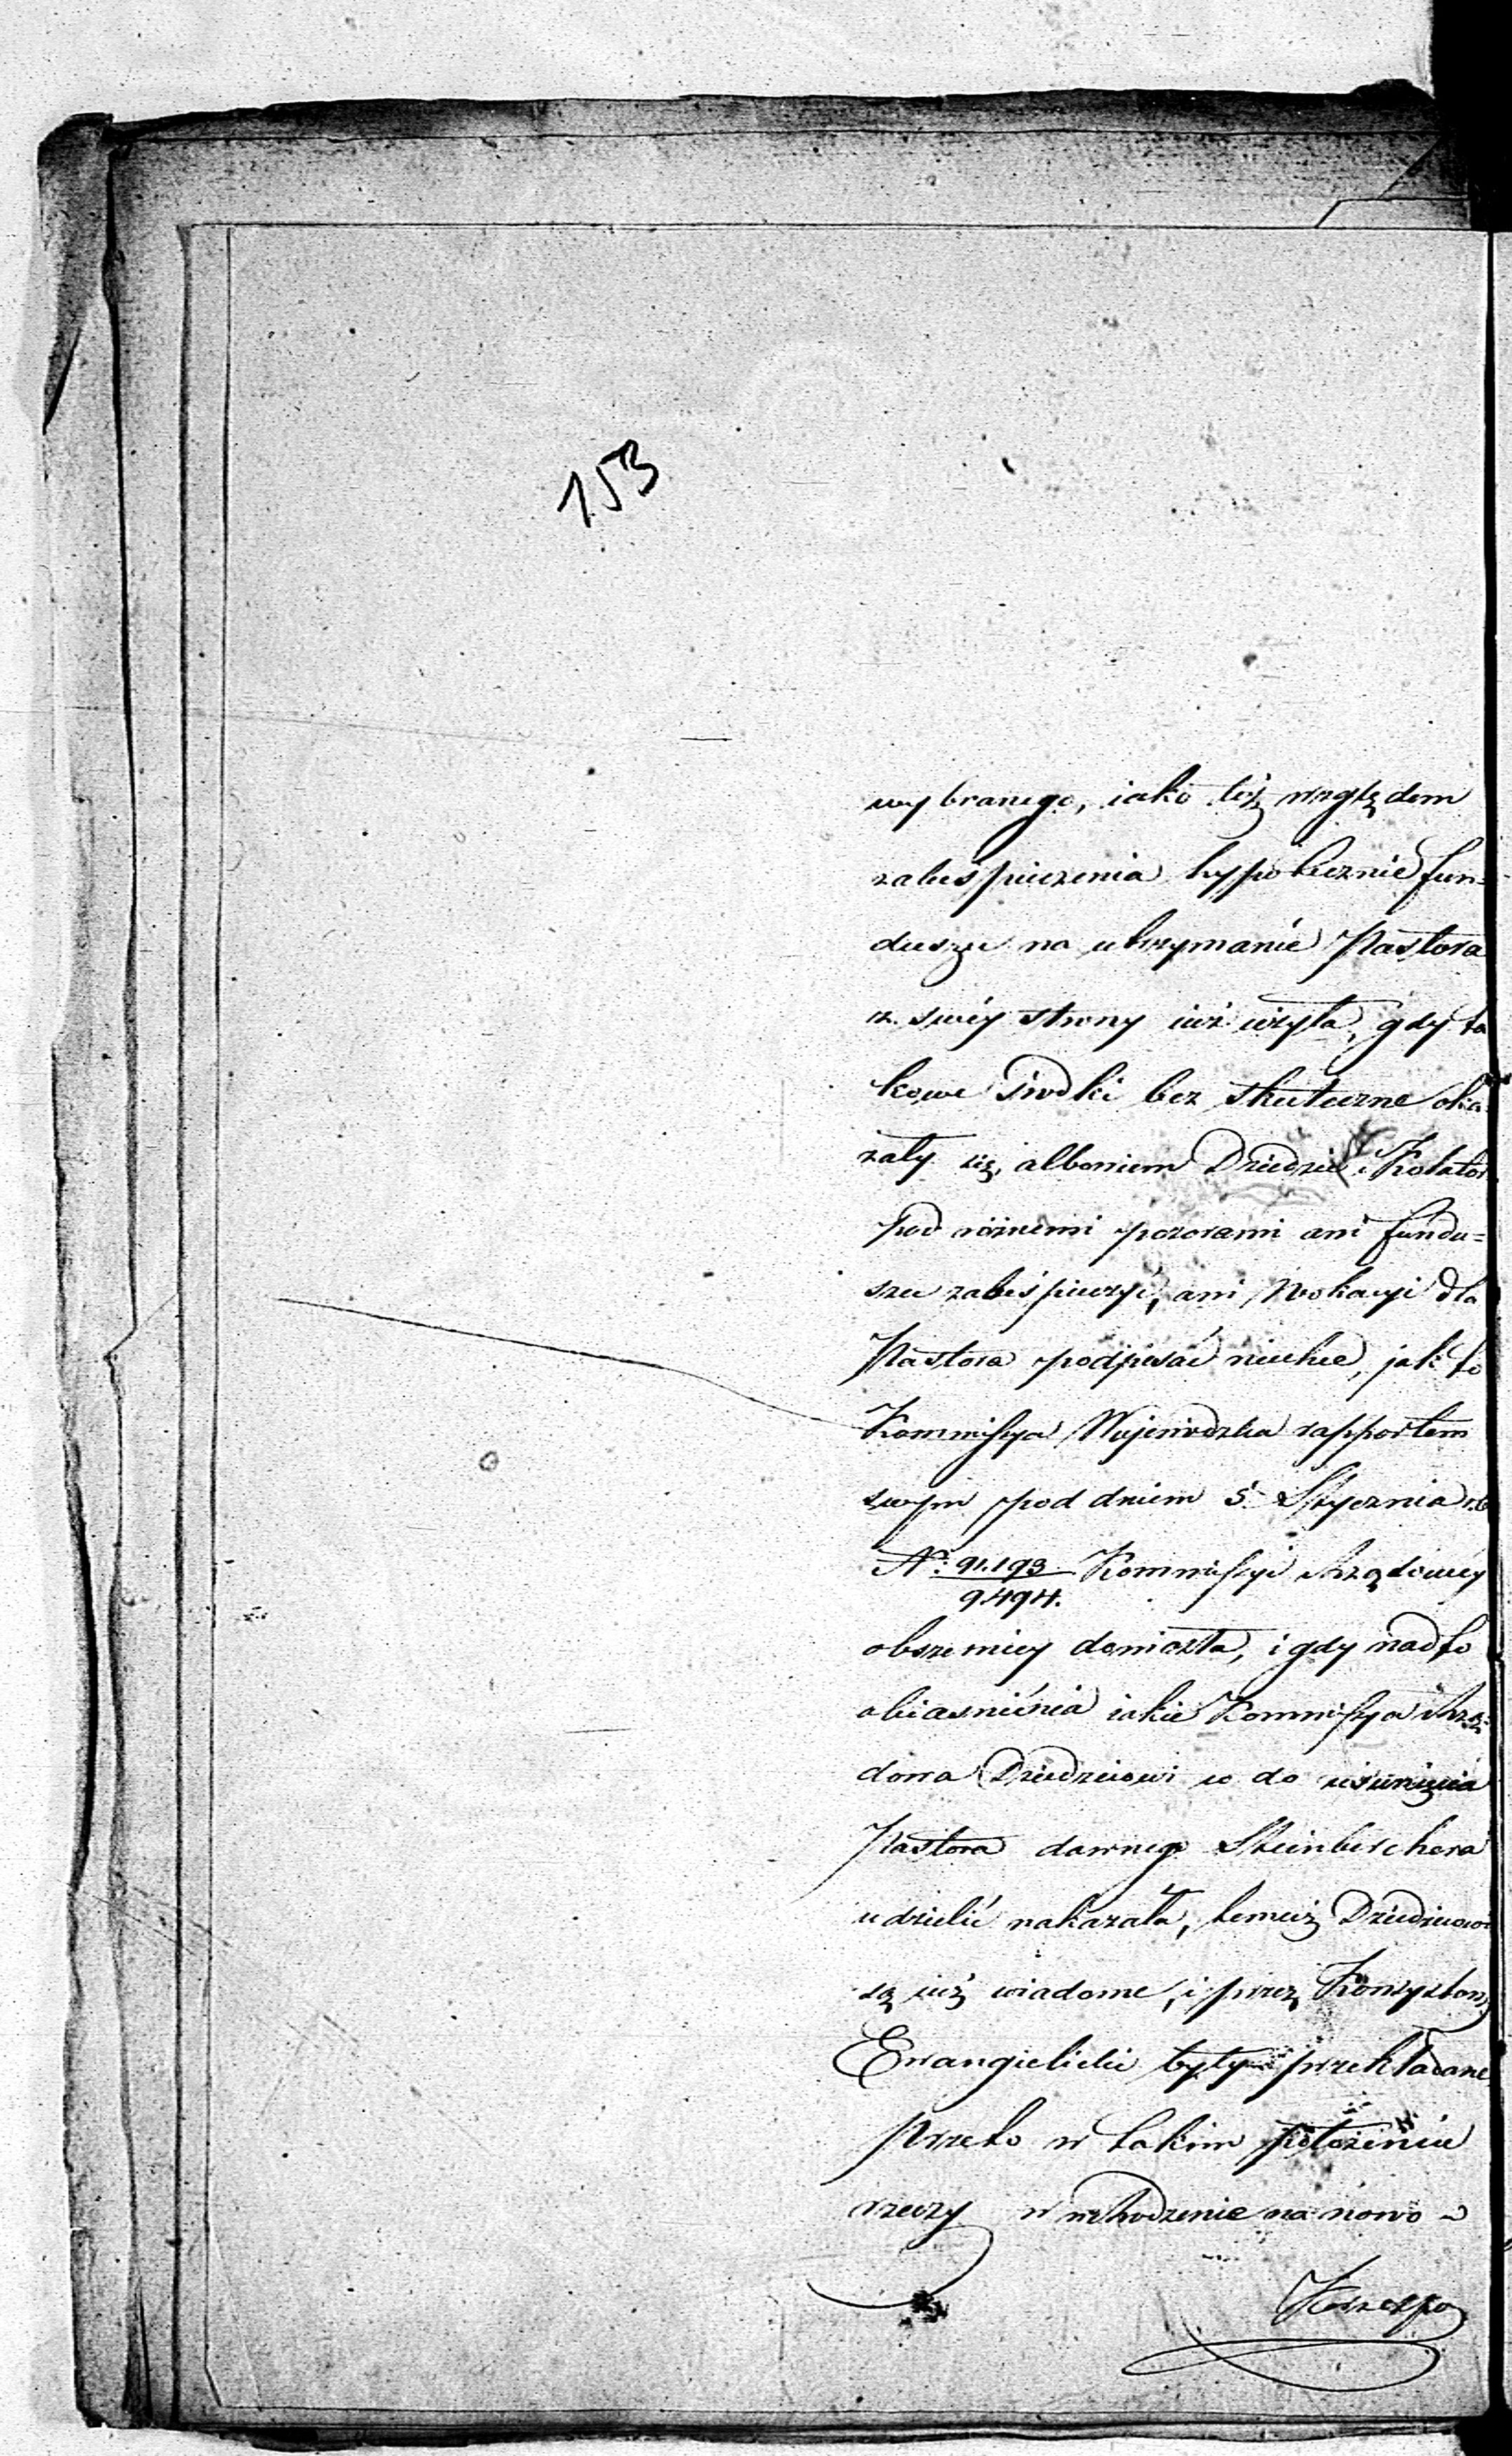 153
wybranego, iako też względem
zabespieczenia hypotecznie fun=
duszu na utrzymanie Pastora
z swéy strony iuż użyła, gdy ta
kowe środki bez skuteczne oka=
zały się, albowiem Dziedzic i Kolator
pod różnemi pozorami ani fundu=
szu zabespieczyć, ani Wokacyi dla
Pastora podpisać niechce, jak to
Kommissya Wojewódzka rapportem
swym pod dniem 5 Stycznia r.b.
No: 91.193/9494. Kommissyi Rządowéy
obszerniey doniosła, i gdy nadto
obiasniénia iakie Kommissya Rzą=
dowa Dziedzicowi co do usunięcia
Pastora dawnego
udzielić nakazała, temuż Dziedzicowi
są iuż wiadome, i przez Konsystorz
Ewangielicki były przekładane
Przeto w takim położeniu
rzeczy wchodzenie na nowo w